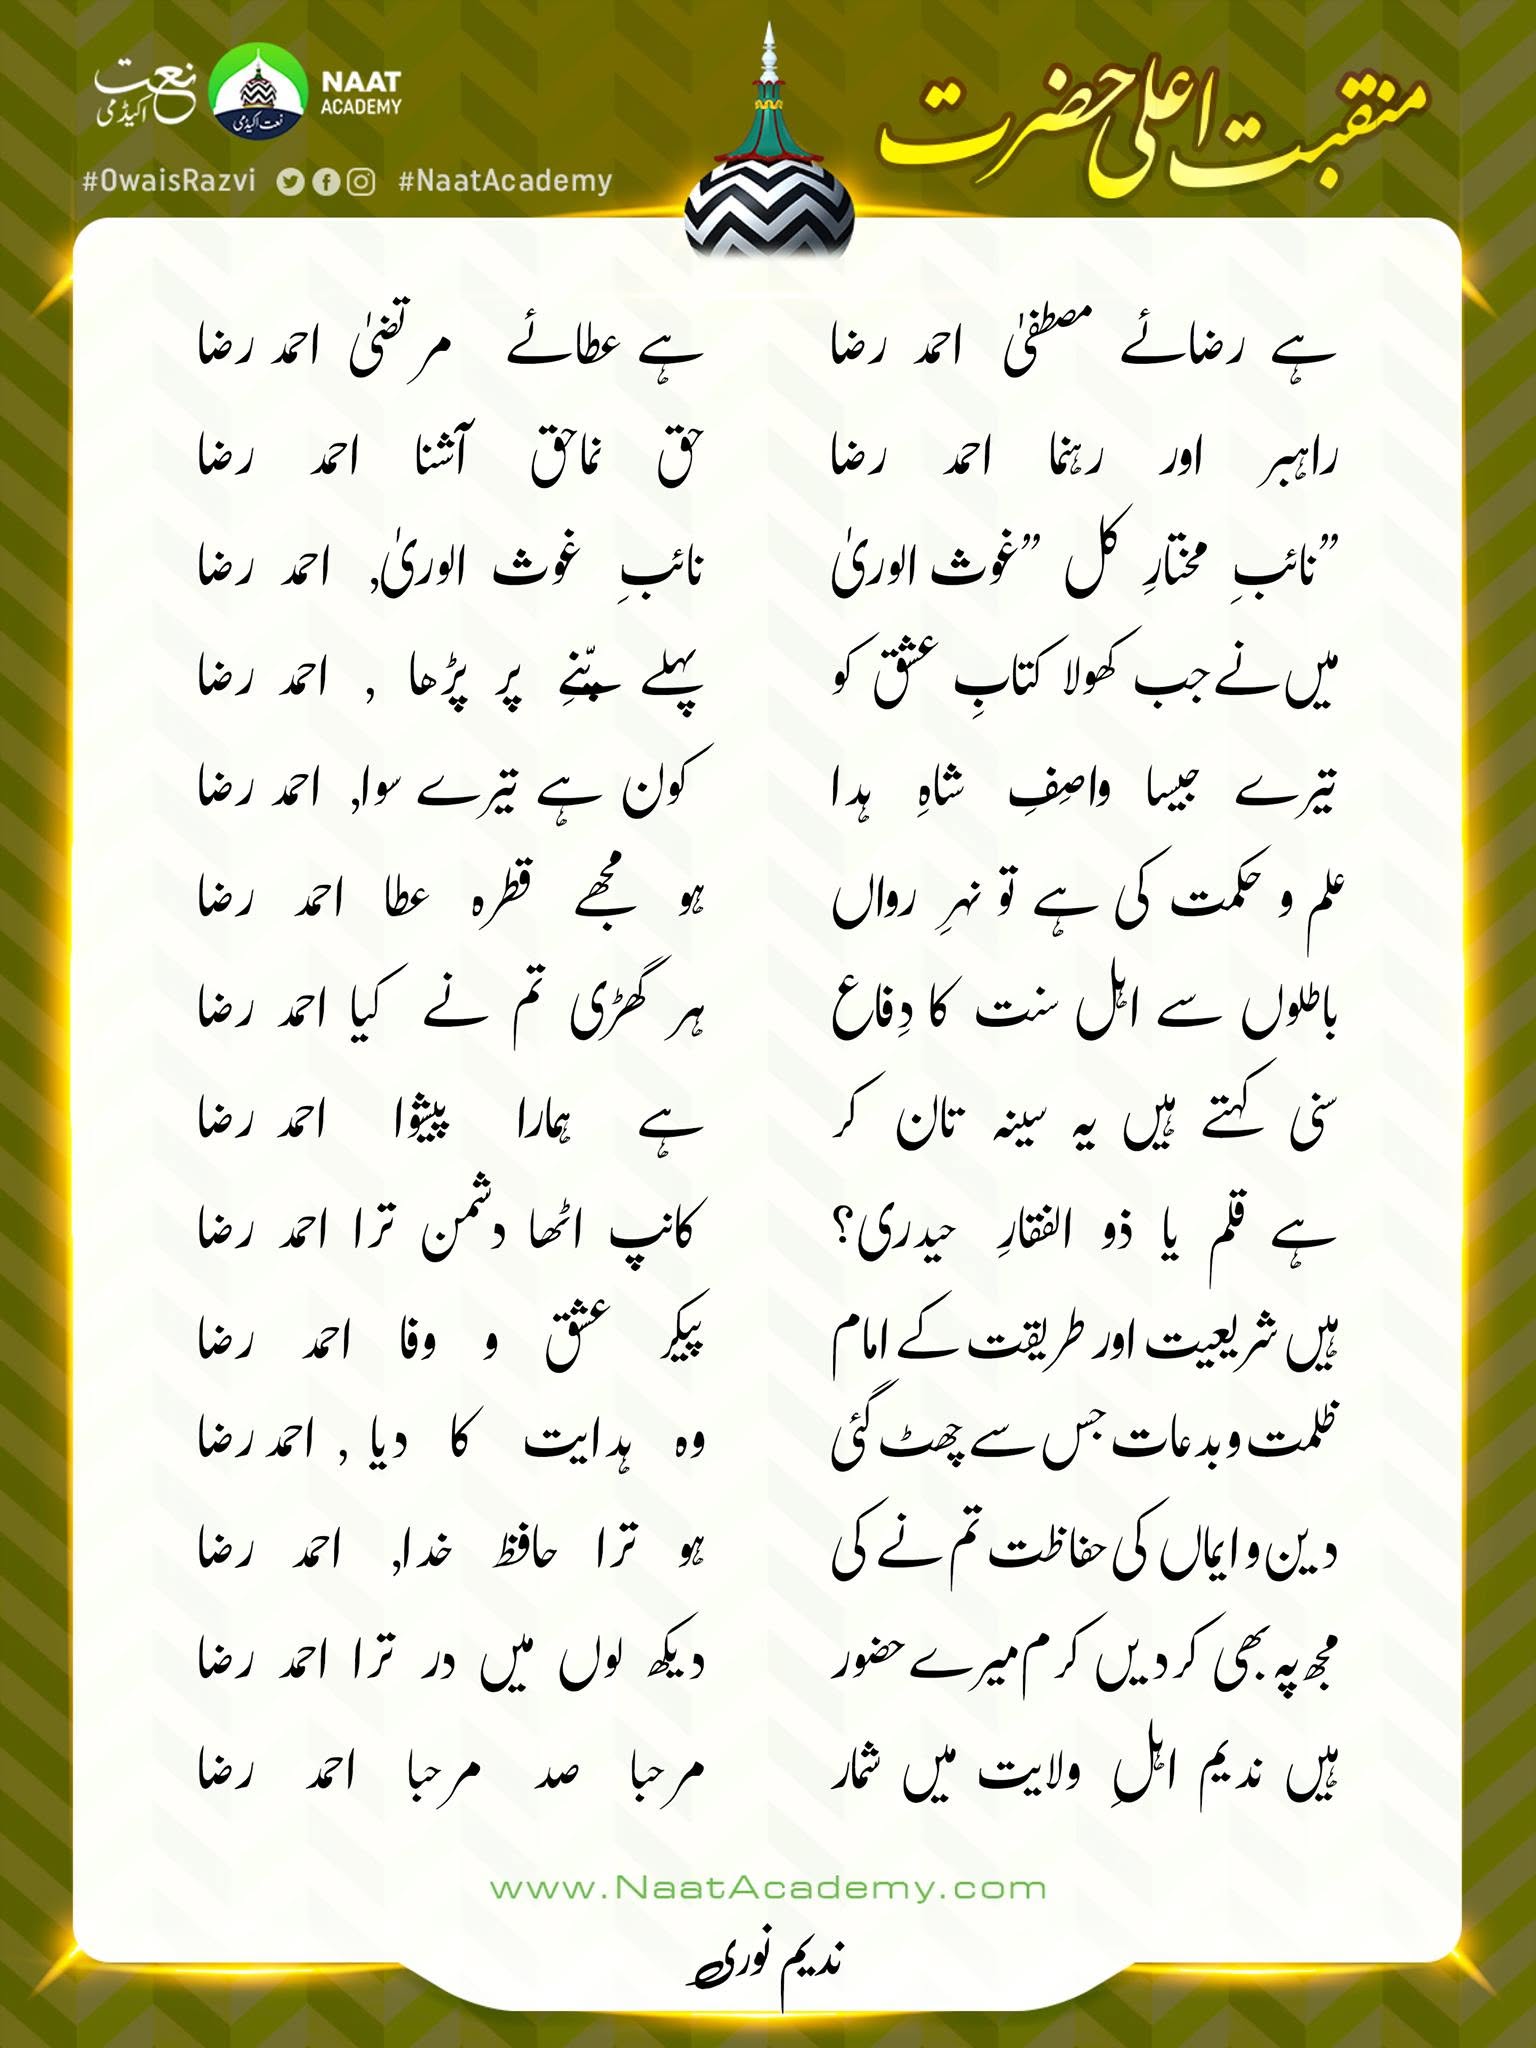 نعت اکیڈمی
نعت اکیڈمی
NAAT
ACADEMY
#OwaisRazvi #NaatAcademy
منقبت اعلی حضرت
ہے رضائے مصطفیٰ احمد رضا ہے عطائے مرتضیٰ احمد رضا
راہبر اور رہنما احمد رضا حق نماحق آشنا احمد رضا
”نائبِ مختارِ کل ”غوث الوریٰ نائبِ غوث الوریٰ, احمد رضا
میں نے جب کھولا کتابِ عشق کو پہلے پنّے پر پڑھا , احمد رضا
تیرے جیسا واصِفِ شاہِ ہدا کون ہے تیرے سوا, احمد رضا
علم و حکمت کی ہے تو نہرِ رواں ہو مجھے قطرہ عطا احمد رضا
باطلوں سے اہل سنت کا دِفاع ہر گھڑی تم نے کیا احمد رضا
سنی کہتے ہیں یہ سینہ تان کر ہے ہمارا پیشوا احمد رضا
ہے قلم یا ذو الفقارِ حیدری؟ کانپ اٹھا دشمن ترا احمد رضا
ہیں شریعیت اور طریقت کے امام پیکر عشق و وفا احمد رضا
ظلمت و بدعات جس سے چھٹ گئی وہ ہدایت کا دیا , احمد رضا
دین و ایماں کی حفاظت تم نے کی ہو ترا حافظ خدا, احمد رضا
مجھ پہ بھی کر دیں کرم میرے حضور دیکھ لوں میں در ترا احمد رضا
ہیں ندیم اہلِ ولایت میں شمار مرحبا صد مرحبا احمد رضا
www.NaatAcademy.com
ندیم نوری